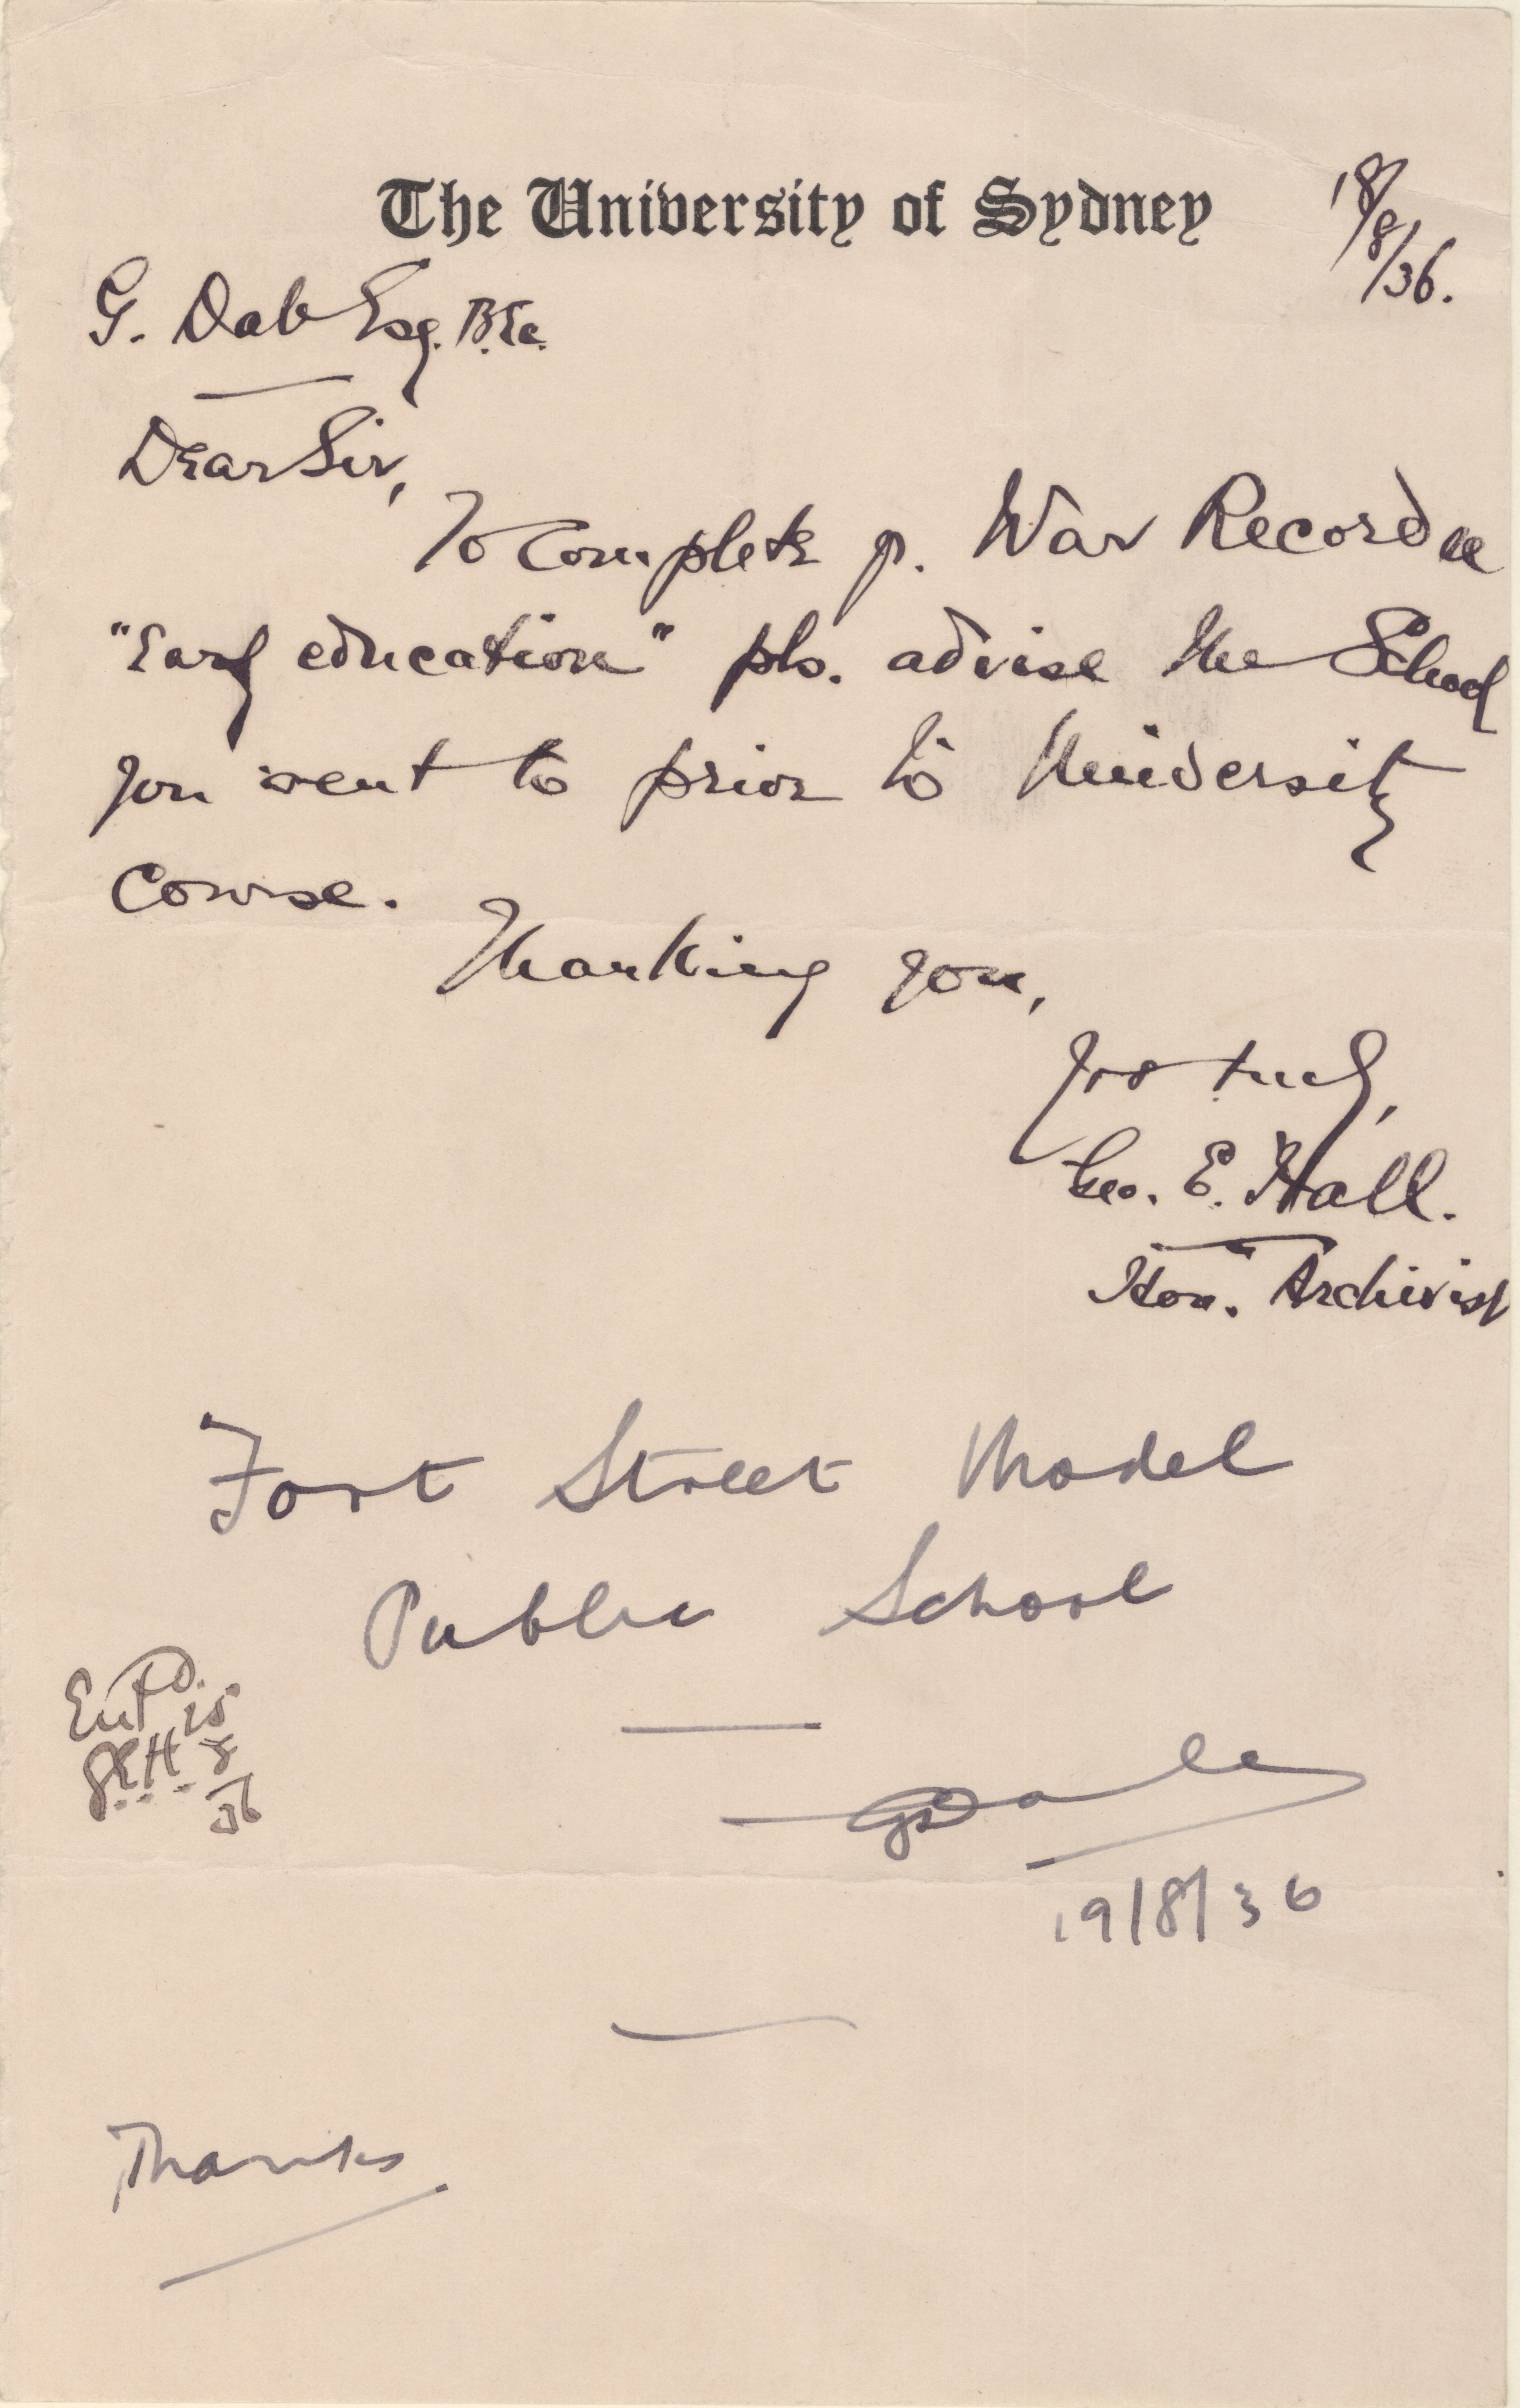 The University of Sydney
18/8/36.
G. Dale Esq. B.Ec.
Dear Sir,
To complete yr. War Record re
"Early education" pls. advise the School
you went to prior to University
Course.
Thanking you,
Yrs truly,
Geo. E. Hall.
Hon. Archivist
Fort Street Model
Public School
Entd.
G.E.H. 25
8
36
GDale
19/8/36
Thanks